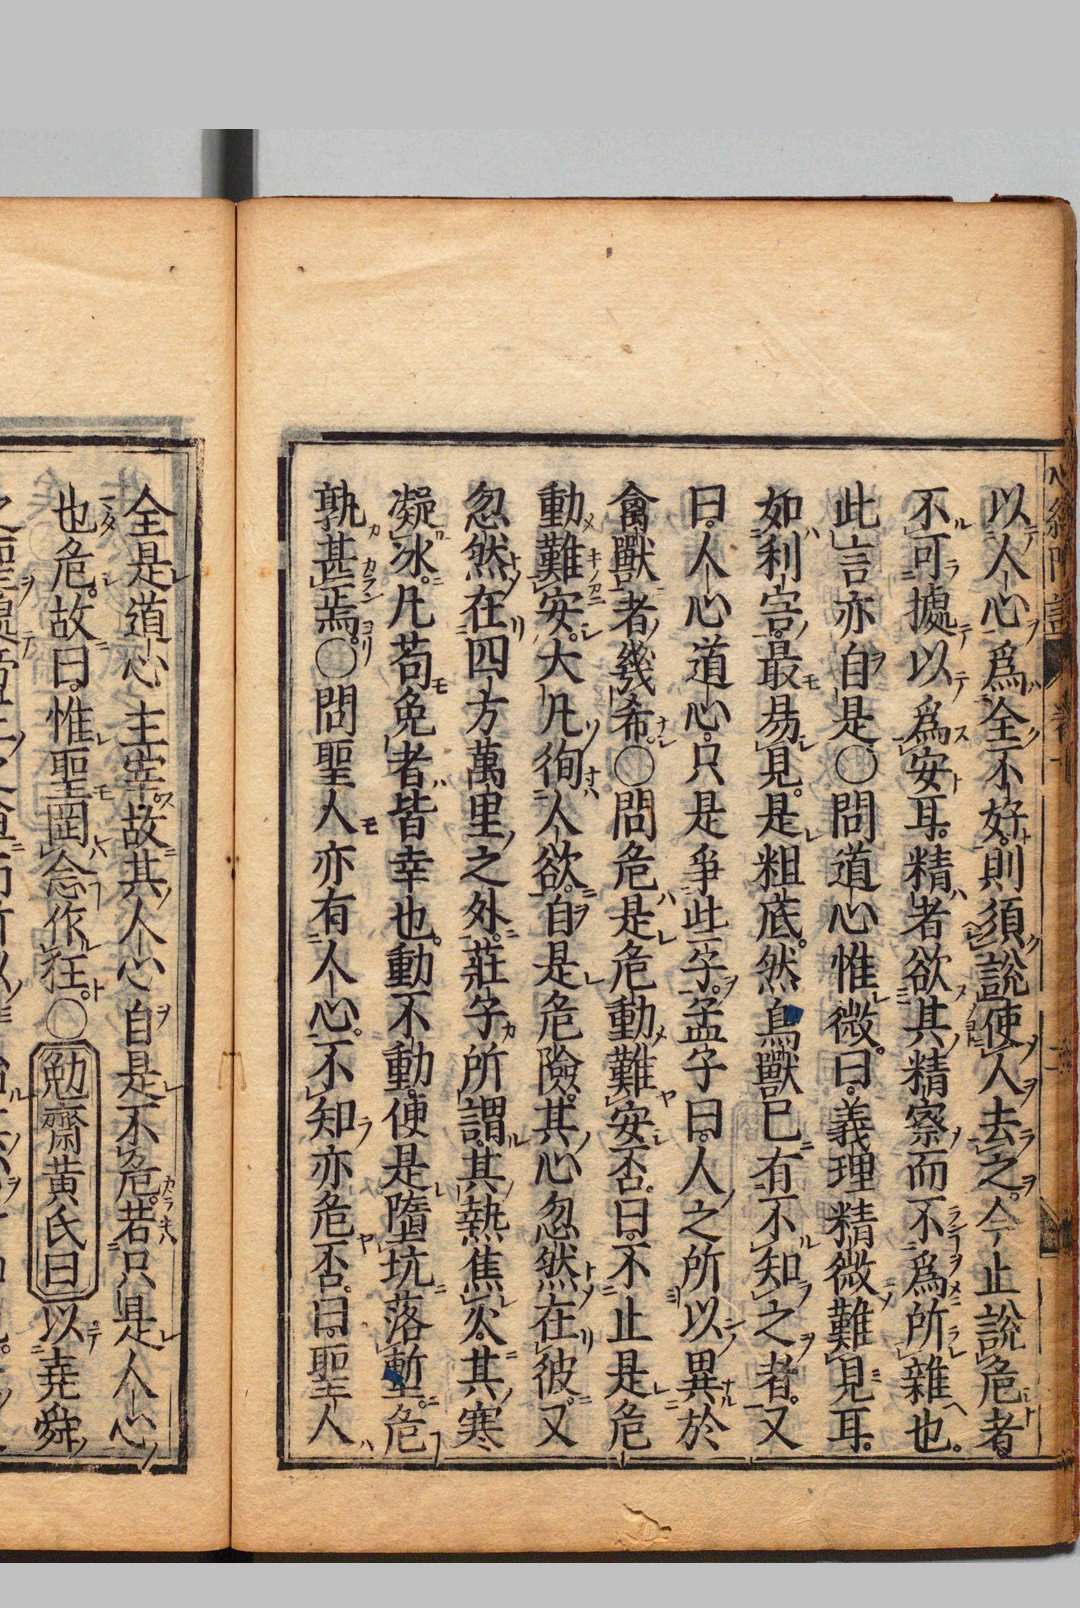 以人心爲全不好則須說使人去之今止說危者
不可據以爲安耳精者欲其精察而不爲所雜也
此言亦自是○問道心惟微曰義理精微難見耳
如利害最易見是粗底然鳥獸已有不知之者又
曰人心道心只是爭些子孟子曰人之所以異於
禽獸者幾希○問危是危動難安否曰不止是危
動難安大凡徇人欲自是危險其心忽然在彼又
忽然在四方萬里之外莊子所謂其熱焦火其寒
凝冰凡苟免者皆幸也動不動便是墮坑落塹危
孰甚焉○問聖人亦有人心不知亦危否曰聖人
全是道心主宰故其人心自是不危若只是人心
也危故曰惟聖罔念作狂○勉齋黃氏曰以堯舜